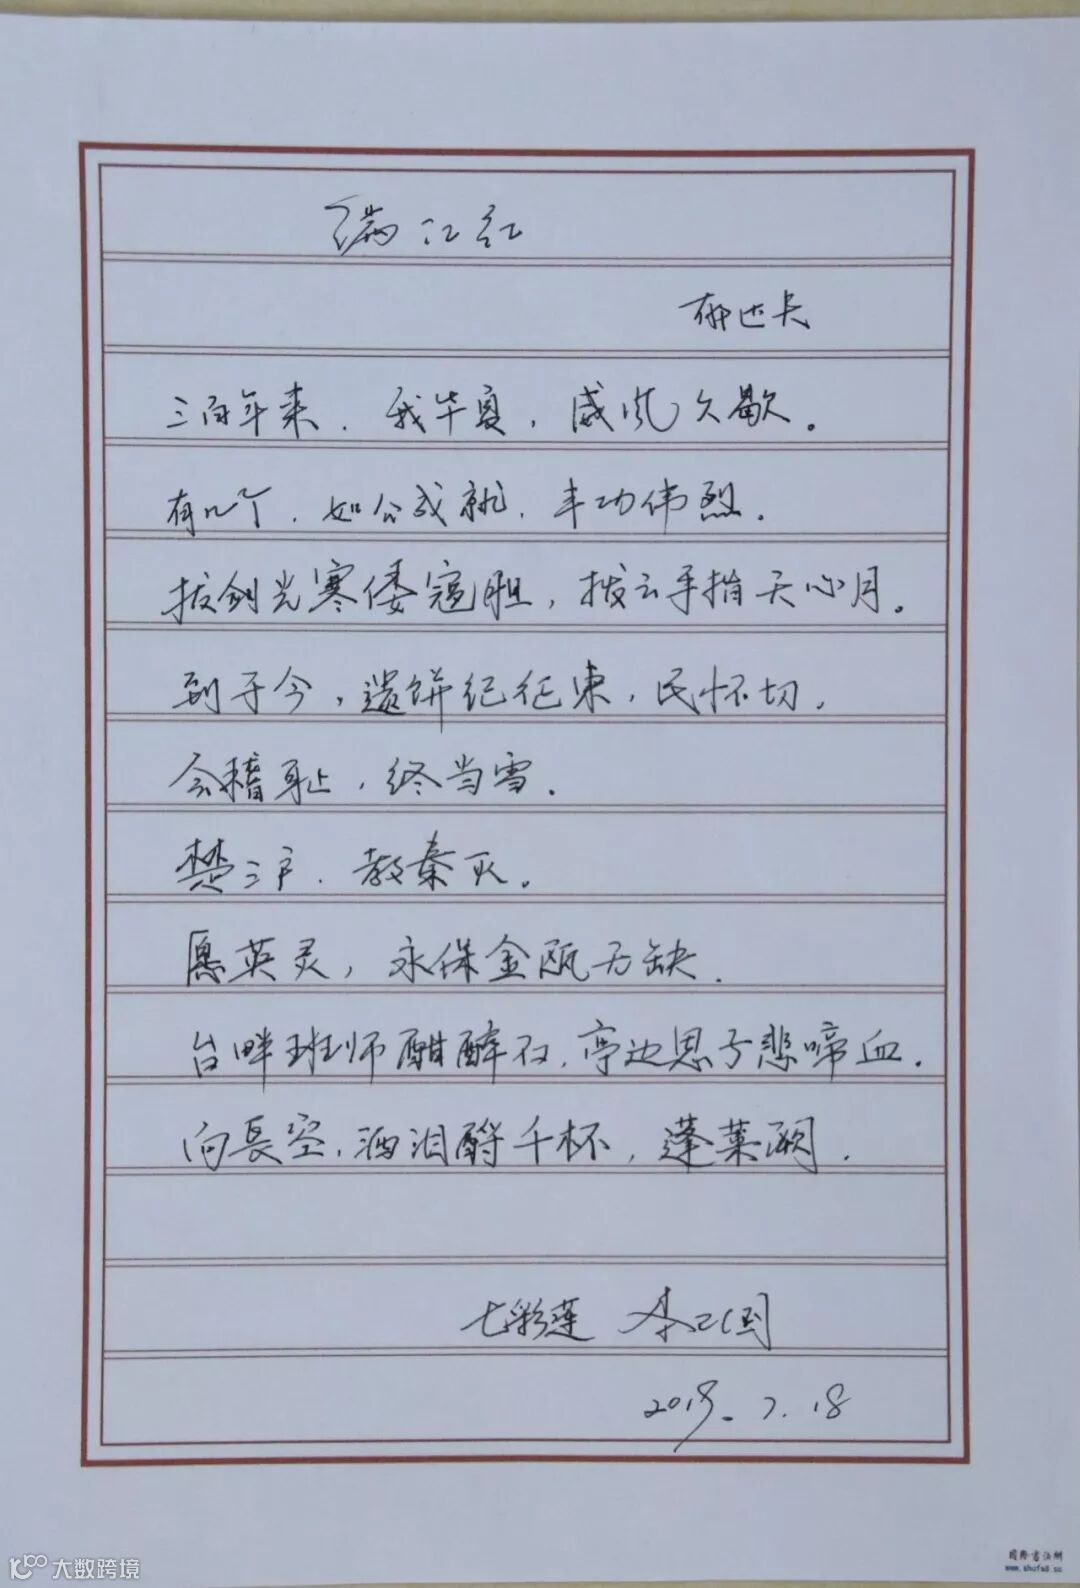 满江红
郁达夫
三百年来，我华夏，威风久歇。
有几个，如公成就，丰功伟烈．
拔剑光寒倭寇胆，拨云手指天心月。
到于今，遗饼纪征东，民怀切，
会稽耻，终当雪．
楚三户．教秦灭。
愿英灵，永保金瓯万缺．
台畔班师酣醉石，亭边思子悲啼血．
向長空，洒泪酹千杯，蓬莱阙．
七彩莲 李
7.18
大数跨境
www.shufa8.so